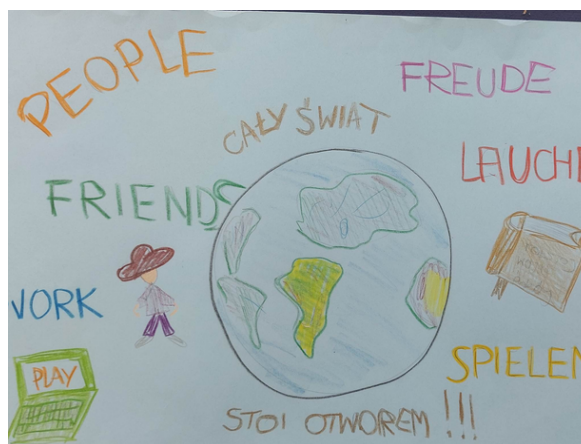 PEOPLE
FREUDE
CAŁY ŚWIAT
LAUCHE
FRIENDS
WORK
PLAY
SPIELEN
STOI OTWOREM !!!